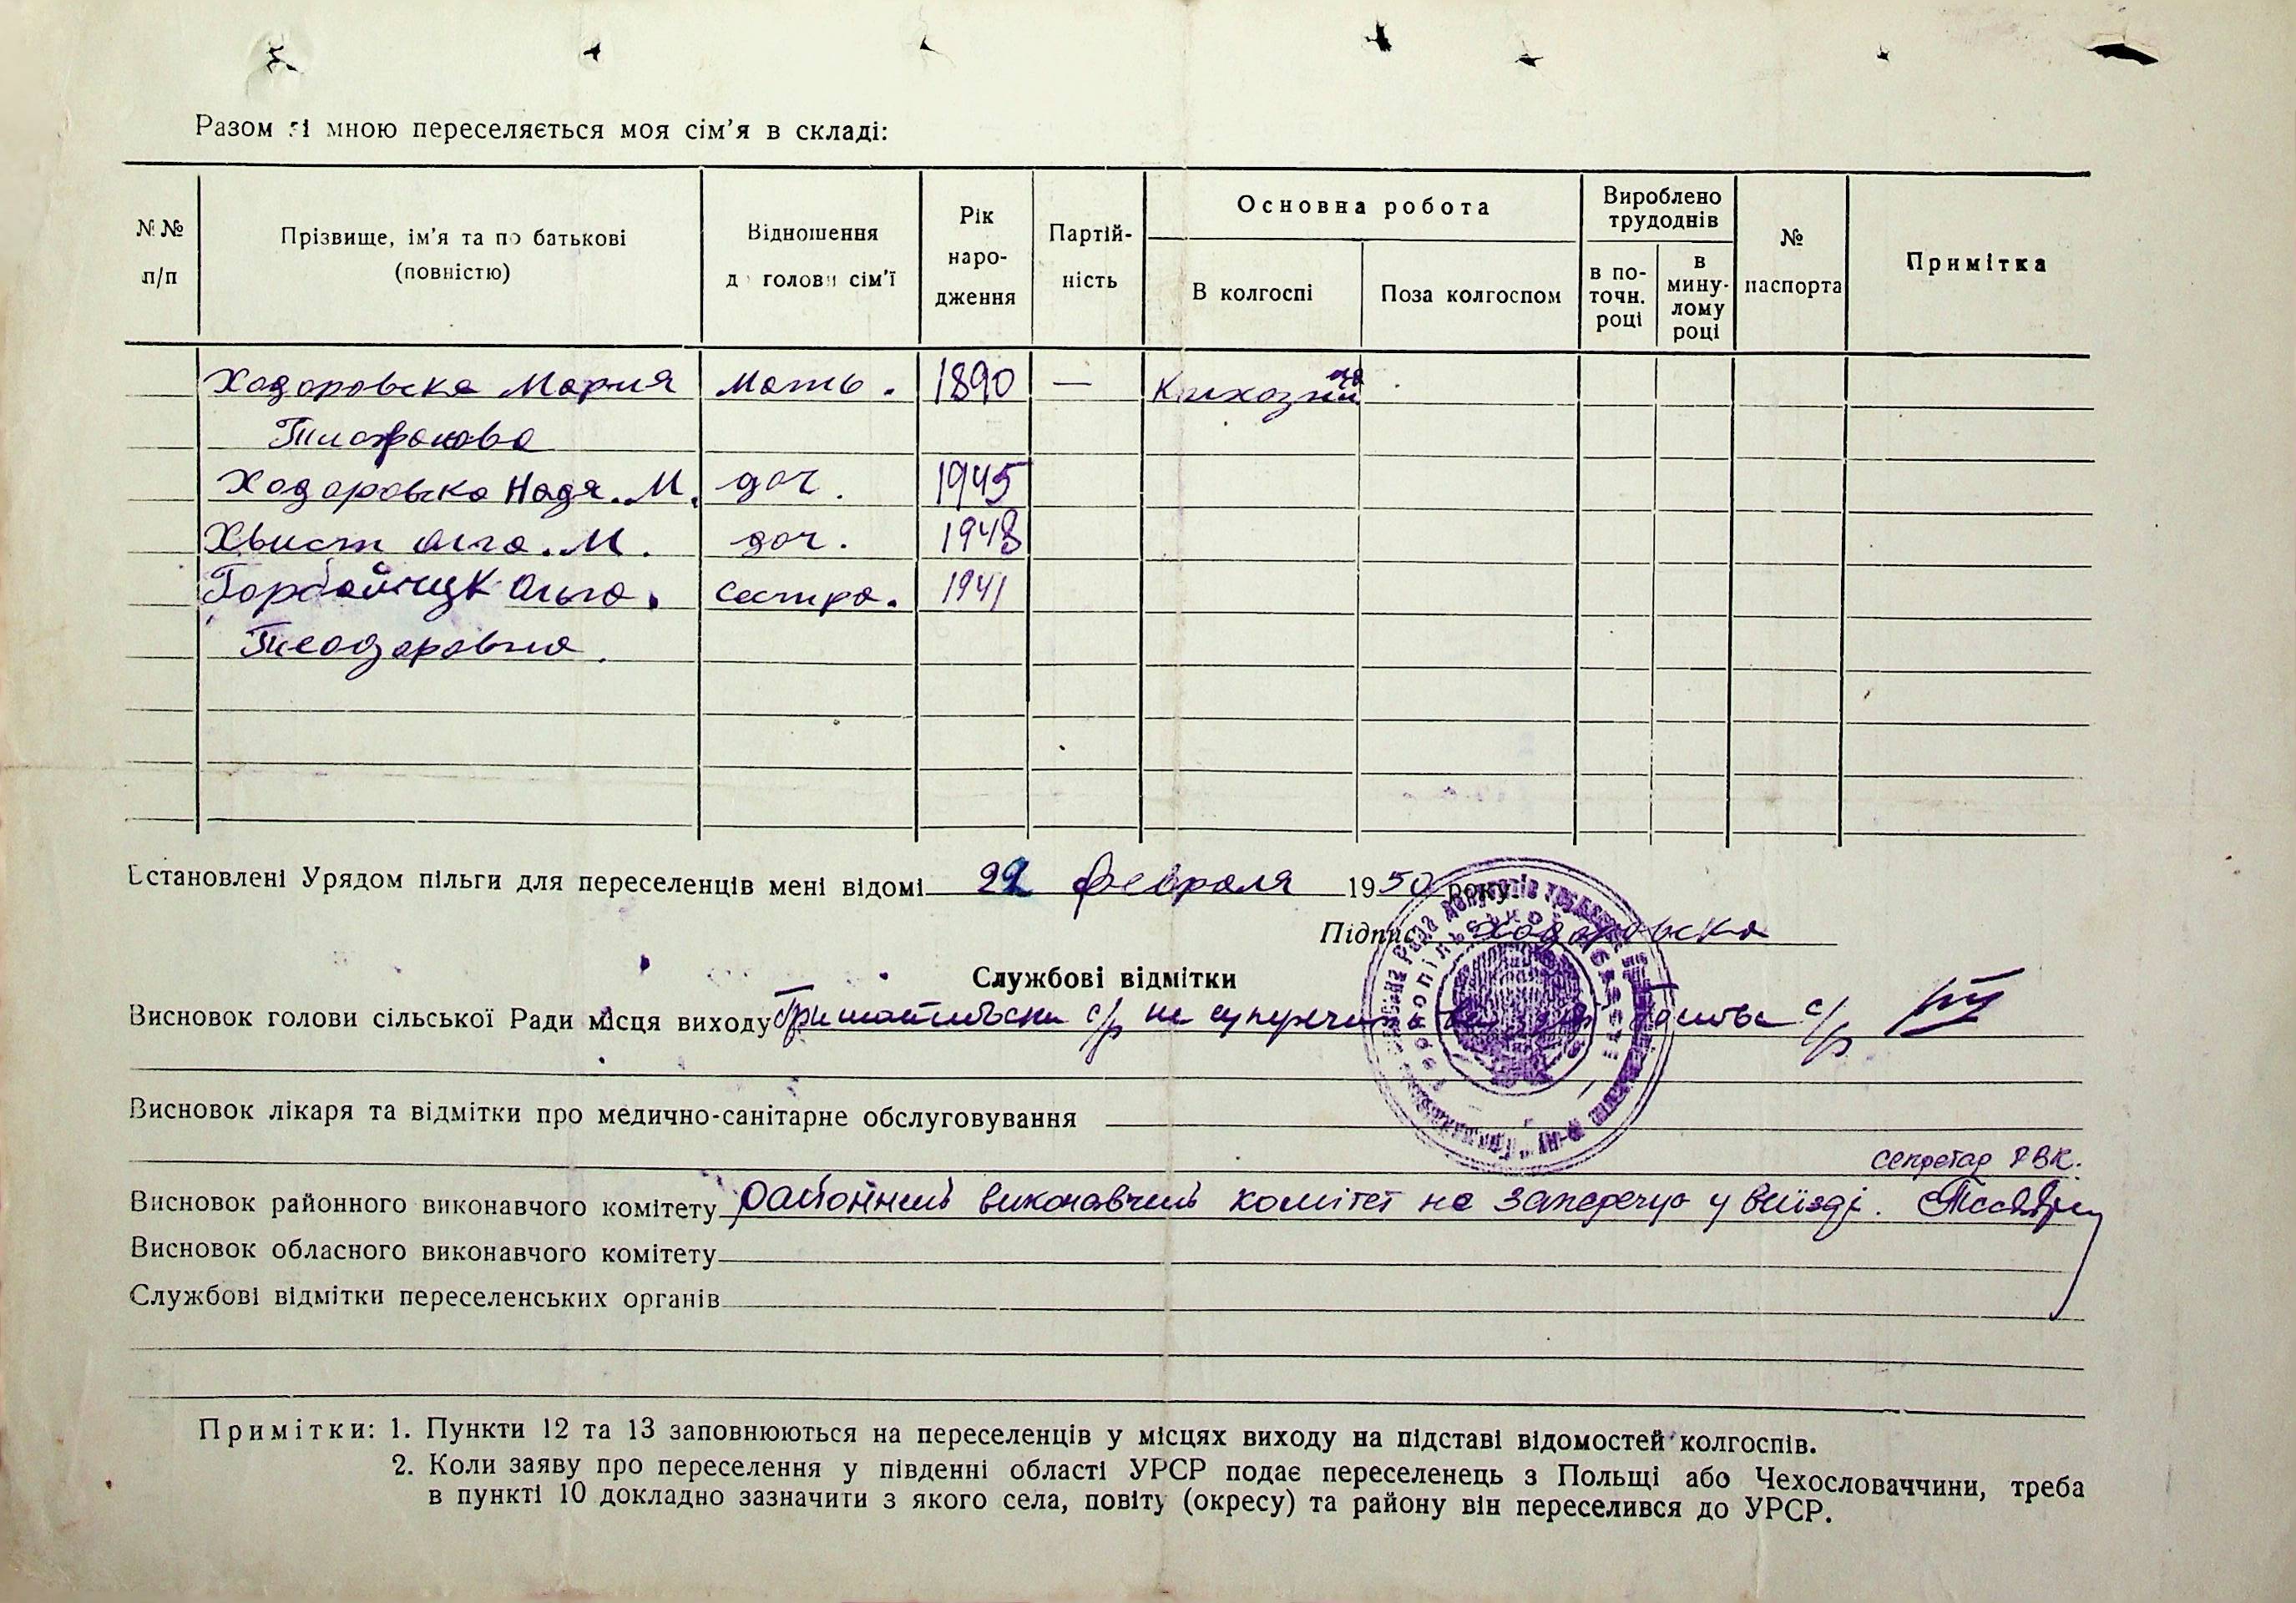 Разом зі мною переселяється моя сім'я в складі:
№№ п/п
Прізвище, ім'я та по батькові (повністю)
Відношення до голови сім'ї
Рік народження
Партійність
Основна робота
В колгоспі
Поза колгоспом
Вироблено трудоднів
в поточн. році
в минулому році
№ паспорта
Примітка
Ходоровска Мария Мать. 1890 —
Ходоровска Надя. М. доч. 1945
Хвист Ольга. М. доч. 1948
Ольга. Сестра. 1941
Теодоровна.
Встановлені Урядом пільги для переселенців мені відомі 22 февраля 1950 року
Підпис Ходоровска
Службові відмітки
Висновок голови сільської Ради місця виходу с/р не Голова с/р
Висновок лікаря та відмітки про медично-санітарне обслуговування
секретар РВК.
Висновок районного виконавчого комітету районний виконавчий комітет не заперечує у виїзді.
Висновок обласного виконавчого комітету
Службові відмітки переселенських органів
Примітки: 1. Пункти 12 та 13 заповнюються на переселенців у місцях виходу на підставі відомостей колгоспів.
2. Коли заяву про переселення у південні області УРСР подає переселенець з Польщі або Чехословаччини, треба
в пункті 10 докладно зазначити з якого села, повіту (окресу) та району він переселився до УРСР.